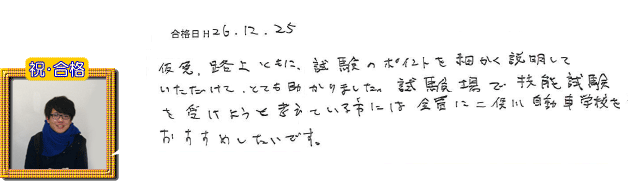 合格日 H26.12.25
祝・合格
仮免、路上ともに、試験のポイントを細かく説明して
いただけて、とても助かりました。試験場で技能試験
を受けようと考えている方には全員に二俣川自動車学校を
おすすめしたいです。